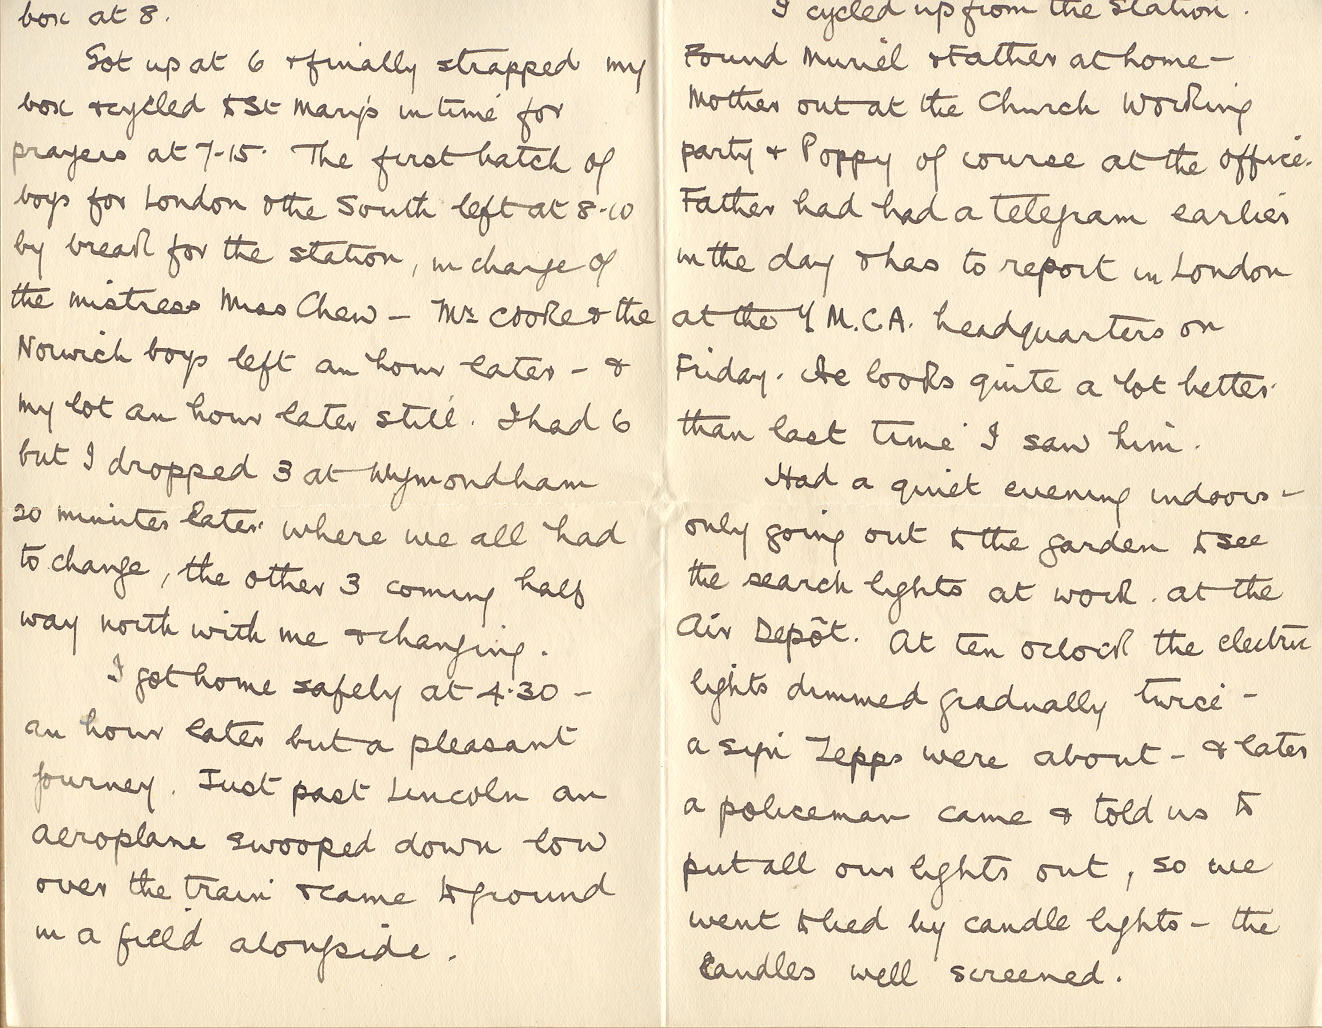 box at 8.
Got up at 6 & finally strapped my
box & cycled to St Mary's in time for
prayers at 7-15. The first batch of
boys for London & the South left at 8-10
by break for the station, in charge of
the mistress Miss Chew – Mr Cooke & the
Norwich boys left an hour later – &
my lot an hour later still. I had 6
but I dropped 3 at Wymondham
20 minutes later where we all had
to change, the other 3 coming half
way north with me & changing.
I got home safely at 4.30 –
an hour later but a pleasant
journey. Just past Lincoln an
aeroplane swooped down low
over the train & came to ground
in a field alongside.
I cycled up from the station.
Found Muriel & Father at home –
Mother out at the Church Working
party & Poppy of course at the office.
Father had had a telegram earlier
in the day & has to report in London
at the Y.M.C.A. headquarters on
Friday. He looks quite a lot better
than last time I saw him.
Had a quiet evening indoors –
only going out to the garden to see
the search lights at work at the
Air Depôt. At ten oclock the electric
lights dimmed gradually twice –
a sign Zepps were about – & later
a policeman came & told us to
put all our lights out, so we
went to bed by candle lights – the
candles well screened.